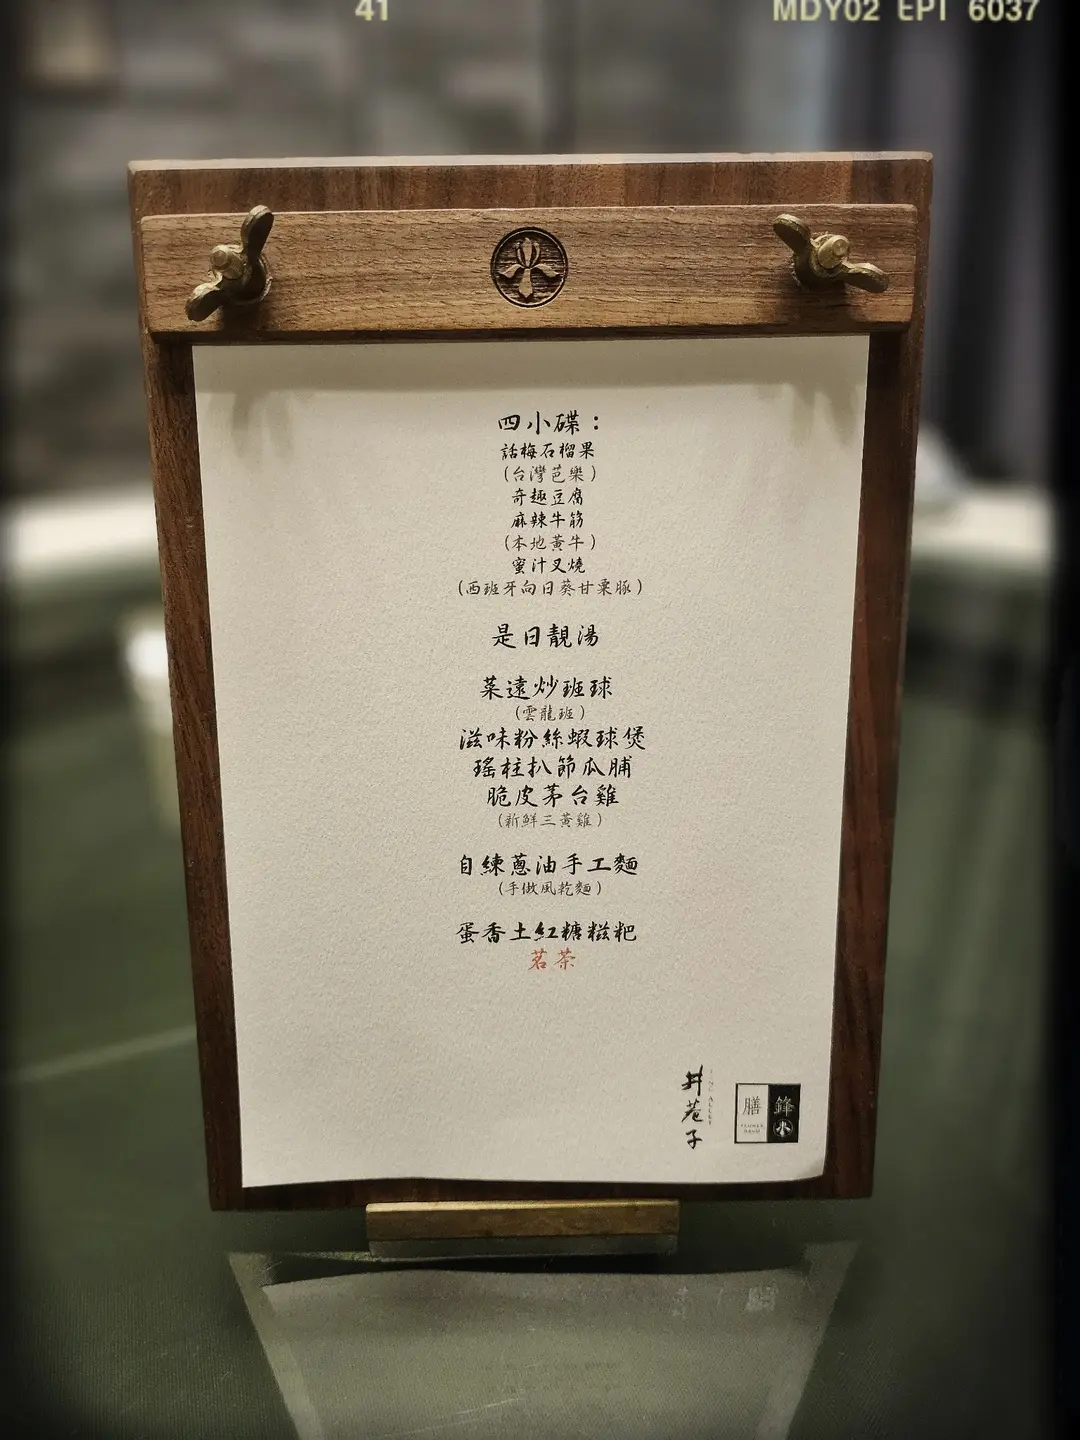 41
MDY02 EPT 6037
四小碟：
話梅石榴果
（台灣芭樂）
奇趣豆腐
麻辣牛筋
（本地黃牛）
蜜汁叉燒
（西班牙向日葵甘栗豚）
是日靚湯
菜遠炒班球
（雲龍班）
滋味粉絲蝦球煲
瑤柱扒節瓜脯
脆皮茅台雞
（新鮮三黃雞）
自練蔥油手工麵
（手做風乾麵）
蛋香土紅糖糍粑
茗茶
井巷子
膳鋒